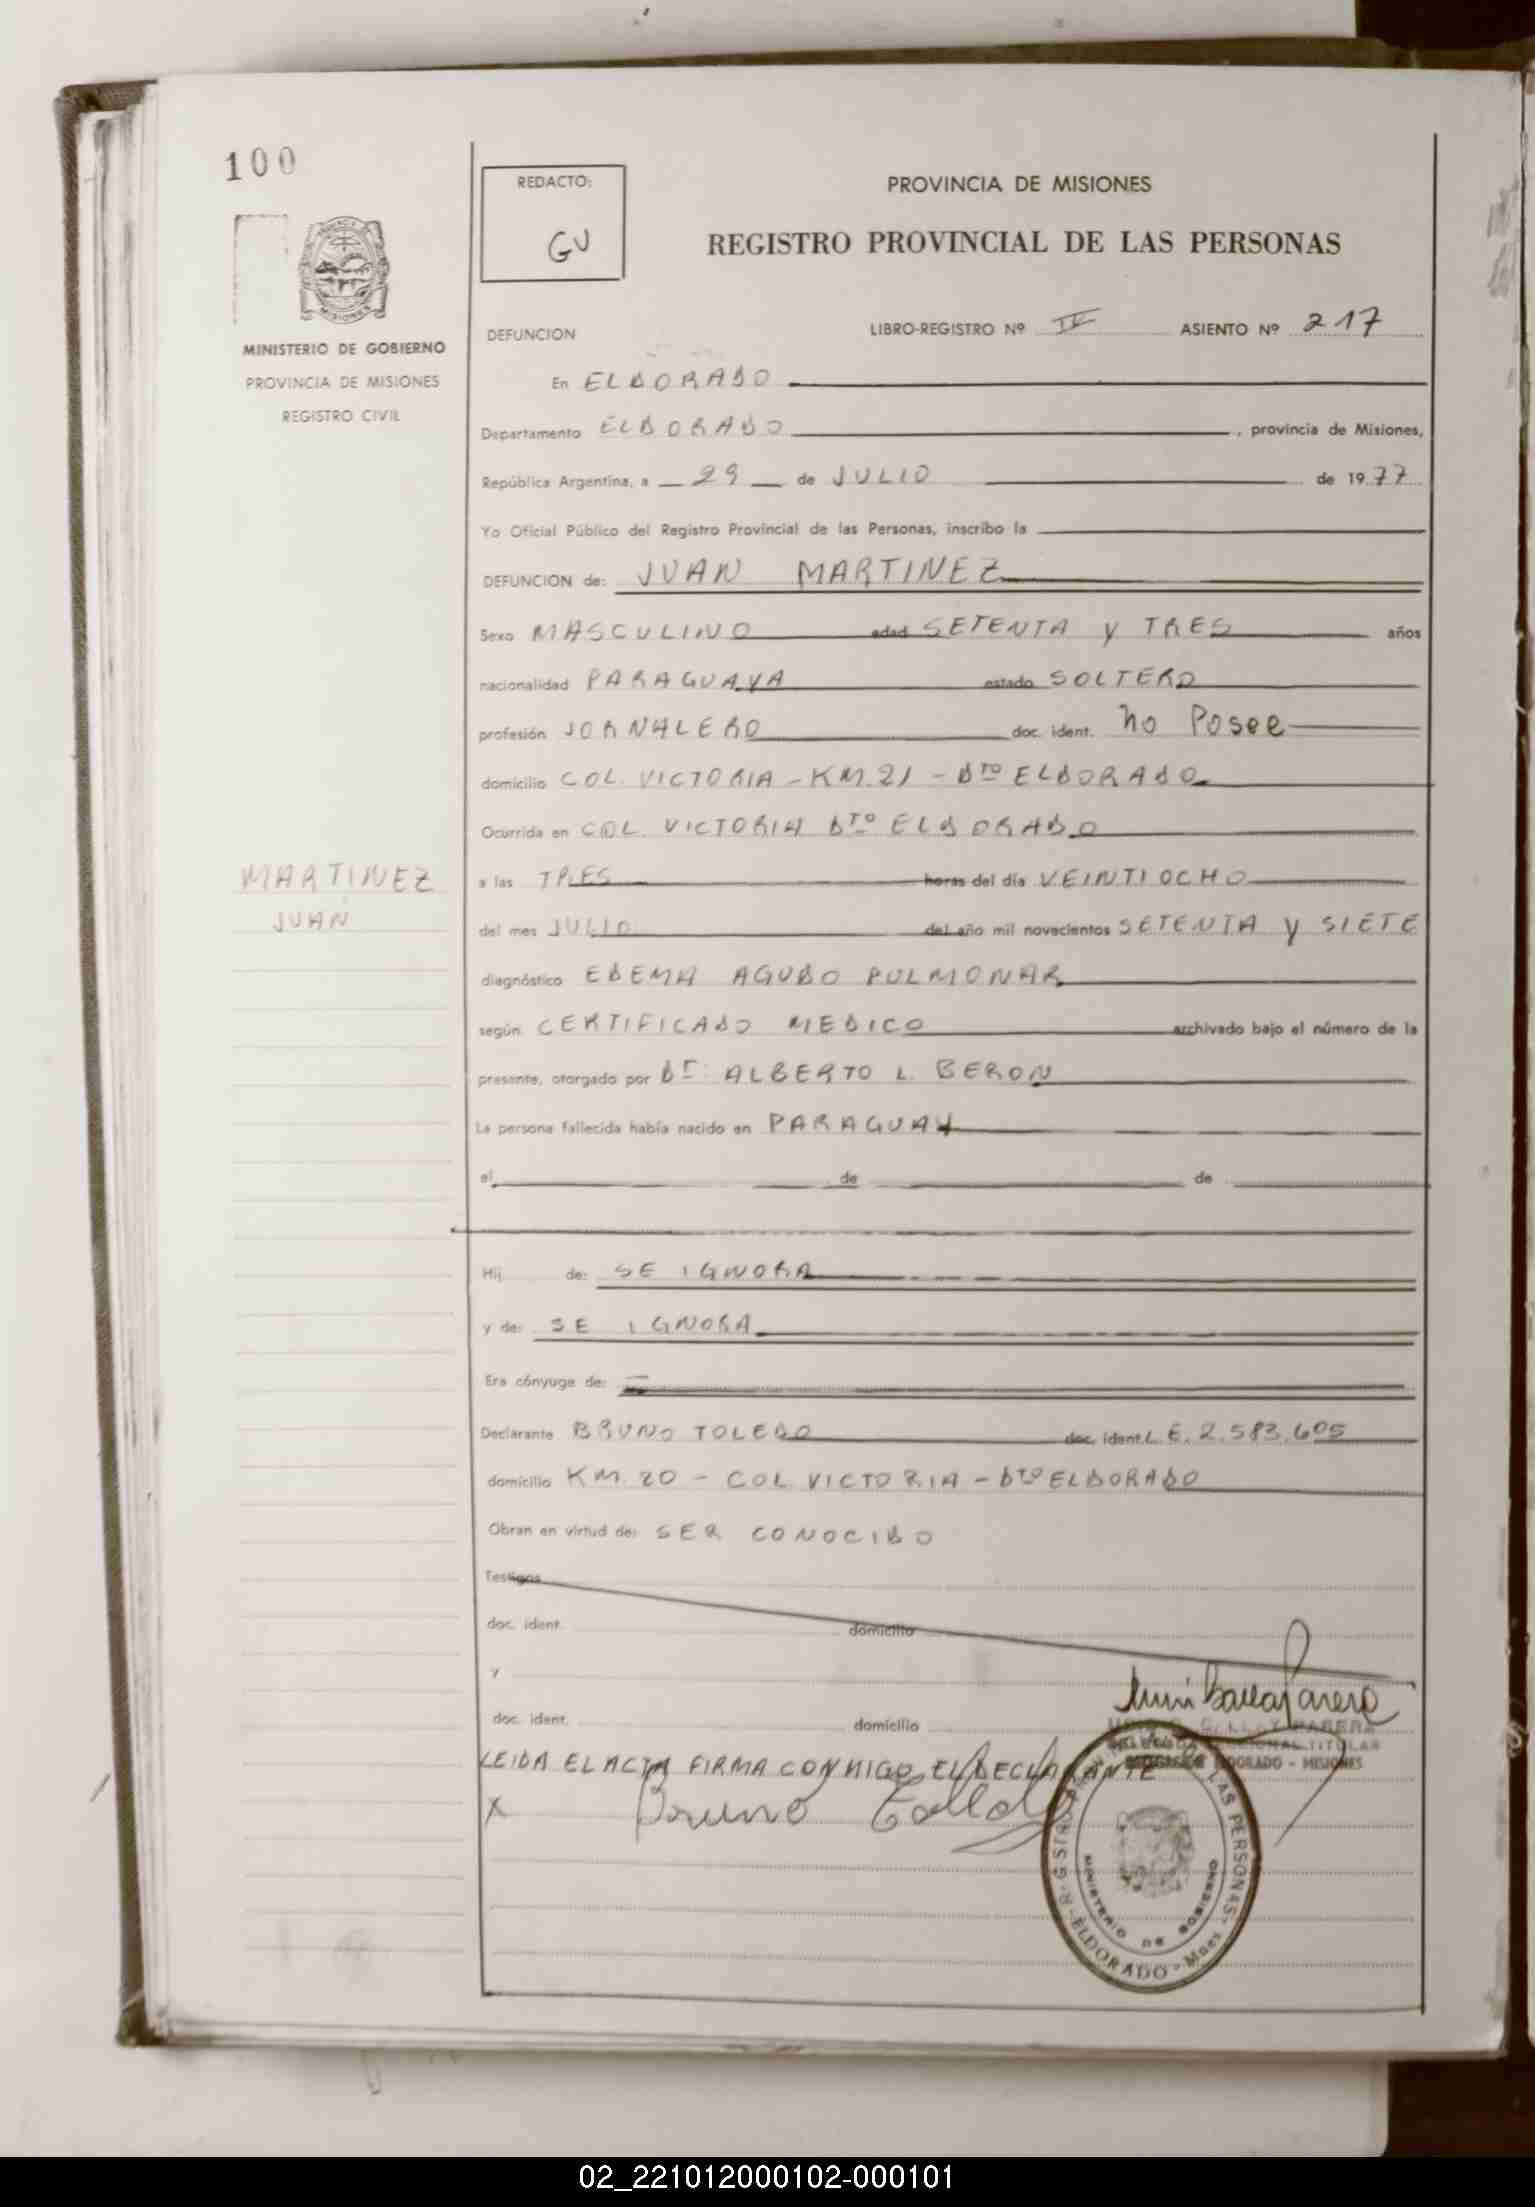 100
REDACTO:
GU
PROVINCIA DE MISIONES
REGISTRO PROVINCIAL DE LAS PERSONAS
MISIONES
MINISTERIO DE GOBIERNO
PROVINCIA DE MISIONES
REGISTRO CIVIL
DEFUNCION LIBRO-REGISTRO Nº IV ASIENTO Nº 217
En ELDORADO
Departamento ELDORADO, provincia de Misiones,
República Argentina, a 29 de JULIO de 1977
Yo Oficial Público del Registro Provincial de las Personas, inscribo la
DEFUNCION de: JUAN MARTINEZ
Sexo MASCULINO edad SETENTA y TRES años
nacionalidad PARAGUAYA estado SOLTERO
profesión JORNALERO doc. ident. no Posee
domicilio COL. VICTORIA - KM. 21 - DTO ELDORADO
Ocurrida en COL. VICTORIA DTO ELDORADO
MARTINEZ
JUAN
a las TRES horas del día VEINTIOCHO
del mes JULIO del año mil novecientos SETENTA y SIETE
diagnóstico EDEMA AGUDO PULMONAR
según CERTIFICADO MEDICO archivado bajo el número de la
presente, otorgado por Dr. ALBERTO L. BERON
La persona fallecida había nacido en PARAGUAY
el de de
Hij de: SE IGNORA
y de: SE IGNORA
Era cónyuge de:
Declarante BRUNO TOLEDO doc. ident. L.E. 2.583.605
domicilio KM. 20 - COL VICTORIA - DTO ELDORADO
Obran en virtud de: SER CONOCIDO
Testigos
doc. ident. domicilio
y
doc. ident. domicilio
TITULAR
ELDORADO - MISIONES
LEIDA EL ACTA FIRMA CONMIGO EL DECLARANTE
X Bruno
LAS PERSONAS
MINISTERIO DE GOBIERNO
ELDORADO - Mnes
02_221012000102-000101